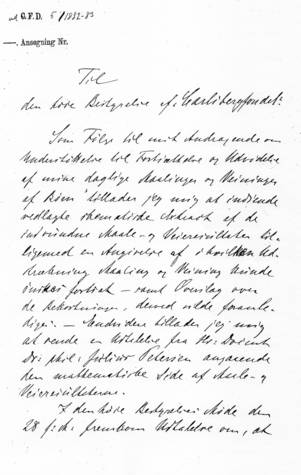 ad C.F.D. 5/1882-83
—. Ansøgning Nr.
Til
den høie Bestyrelse af "Carlsbergfondet".
Som Følge til mit Andragende om
Understøttelse til Fortsættelse og Udvidelse
af mine daglige Maalinger og Veininger
af Børn tillader jeg mig at indsende
vedlagte skematiske af de
indvundne Maale- og Veieresultater til-
ligemed en Angivelse af i hvilken Ud-
strækning Maaling og Veining kunde
ønskes fortsat — samt Overslag over
de Bekostninger, derved vilde foraale-
dige. — Endvidere tillader jeg mig
at sende en Udtalelse fra Hr. Docent
Dr. phil. Julius Petersen angaaende
den mathematiske Side af Maale- og
Veieresultaterne.
I den høie Bestyrelses Møde den
28 f: M: fremkom Udtalelse om, at